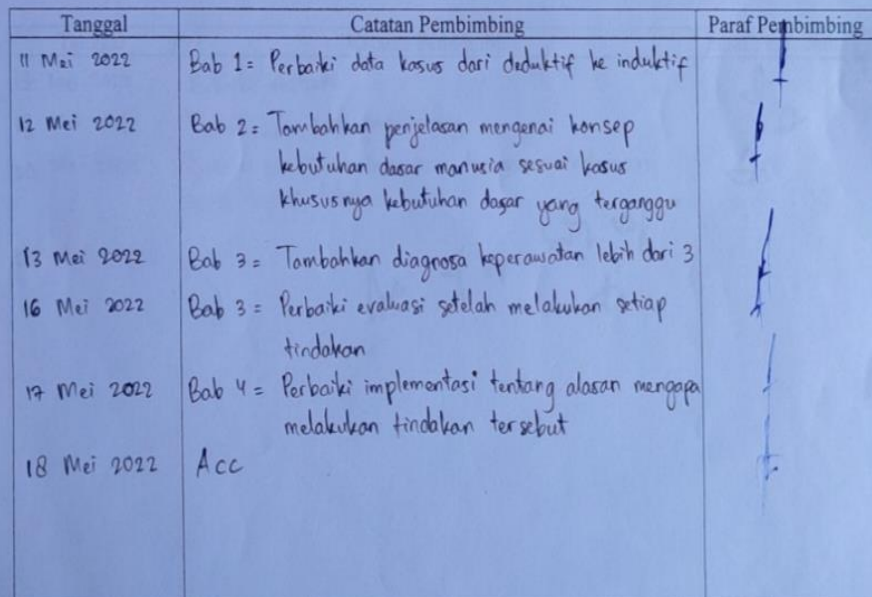 Tanggal Catatan Pembimbing Paraf Pembimbing
11 Mei 2022 Bab 1 = Perbaiki data kasus dari deduktif ke induktif
12 Mei 2022 Bab 2 = Tambahkan penjelasan mengenai konsep
kebutuhan dasar manusia sesuai kasus
khususnya kebutuhan dasar yang terganggu
13 Mei 2022 Bab 3 = Tambahkan diagnosa keperawatan lebih dari 3
16 Mei 2022 Bab 3 = Perbaiki evaluasi setelah melakukan setiap
tindakan
17 Mei 2022 Bab 4 = Perbaiki implementasi tentang alasan mengapa
melakukan tindakan tersebut
18 Mei 2022 Acc